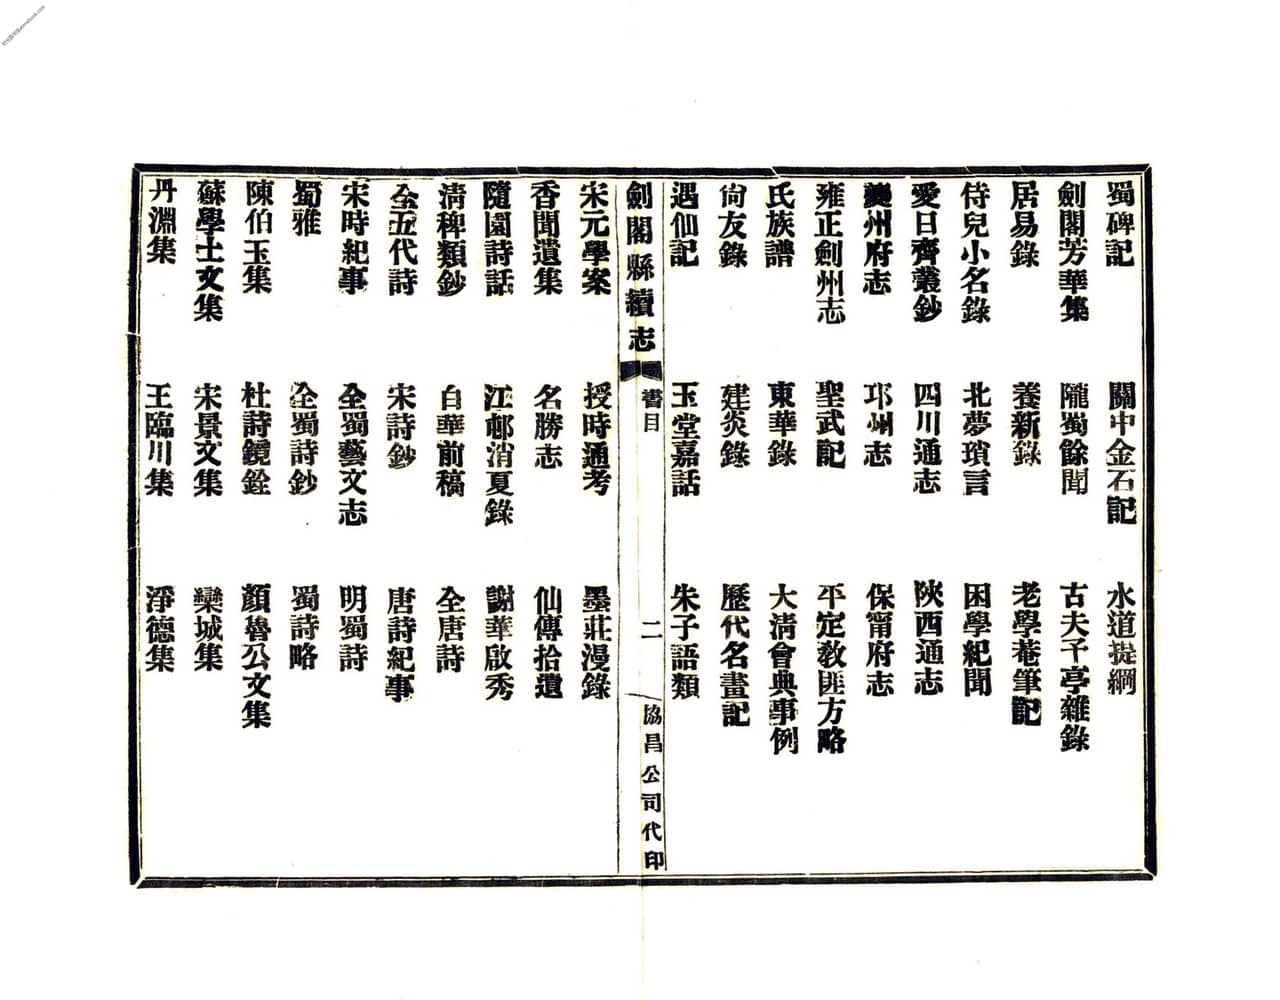 蜀碑記 關中金石記 水道提綱
劍閣芳華集 隴蜀餘聞 古夫于亭雜錄
居易錄 養新錄 老學菴筆記
侍兒小名錄 北夢瑣言 困學紀聞
愛日齊叢鈔 四川通志 陝西通志
夔州府志 邛州志 保甯府志
雍正劍州志 聖武記 平定教匪方略
氏族譜 東華錄 大清會典事例
尙友錄 建炎錄 歷代名畫記
遇仙記 玉堂嘉話 朱子語類
劍閣縣續志 書目 二 協昌公司代印
宋元學案 授時通考 墨莊漫錄
香聞遺集 名勝志 仙傳拾遺
隨園詩話 江邨消夏錄 謝華啟秀
清稗類鈔 白華前稿 全唐詩
全五代詩 宋詩鈔 唐詩紀事
宋時紀事 全蜀藝文志 明蜀詩
蜀雅 全蜀詩鈔 蜀詩略
陳伯玉集 杜詩鏡銓 顏魯公文集
蘇學士文集 宋景文集 欒城集
丹淵集 王臨川集 淨德集